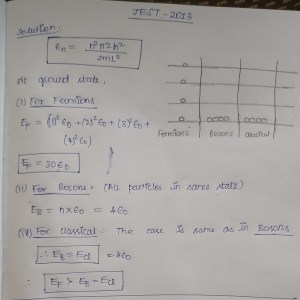 JEST - 2013
Solution:
En = n²π²ħ² / 2mL²
At ground state,
(i) For Fermions
EF = (1)² E0 + (2)² E0 + (3)² E0 +
(4)² E0)
EF = 30E0
Fermions Bosons classical
(ii) For Bosons → (All particles in same state)
EB = n×E0 = 4E0
(iii) For classical - The case is same as in Bosons
∴ EB = Ecl = 4E0
∴ EF > EB = Ecl